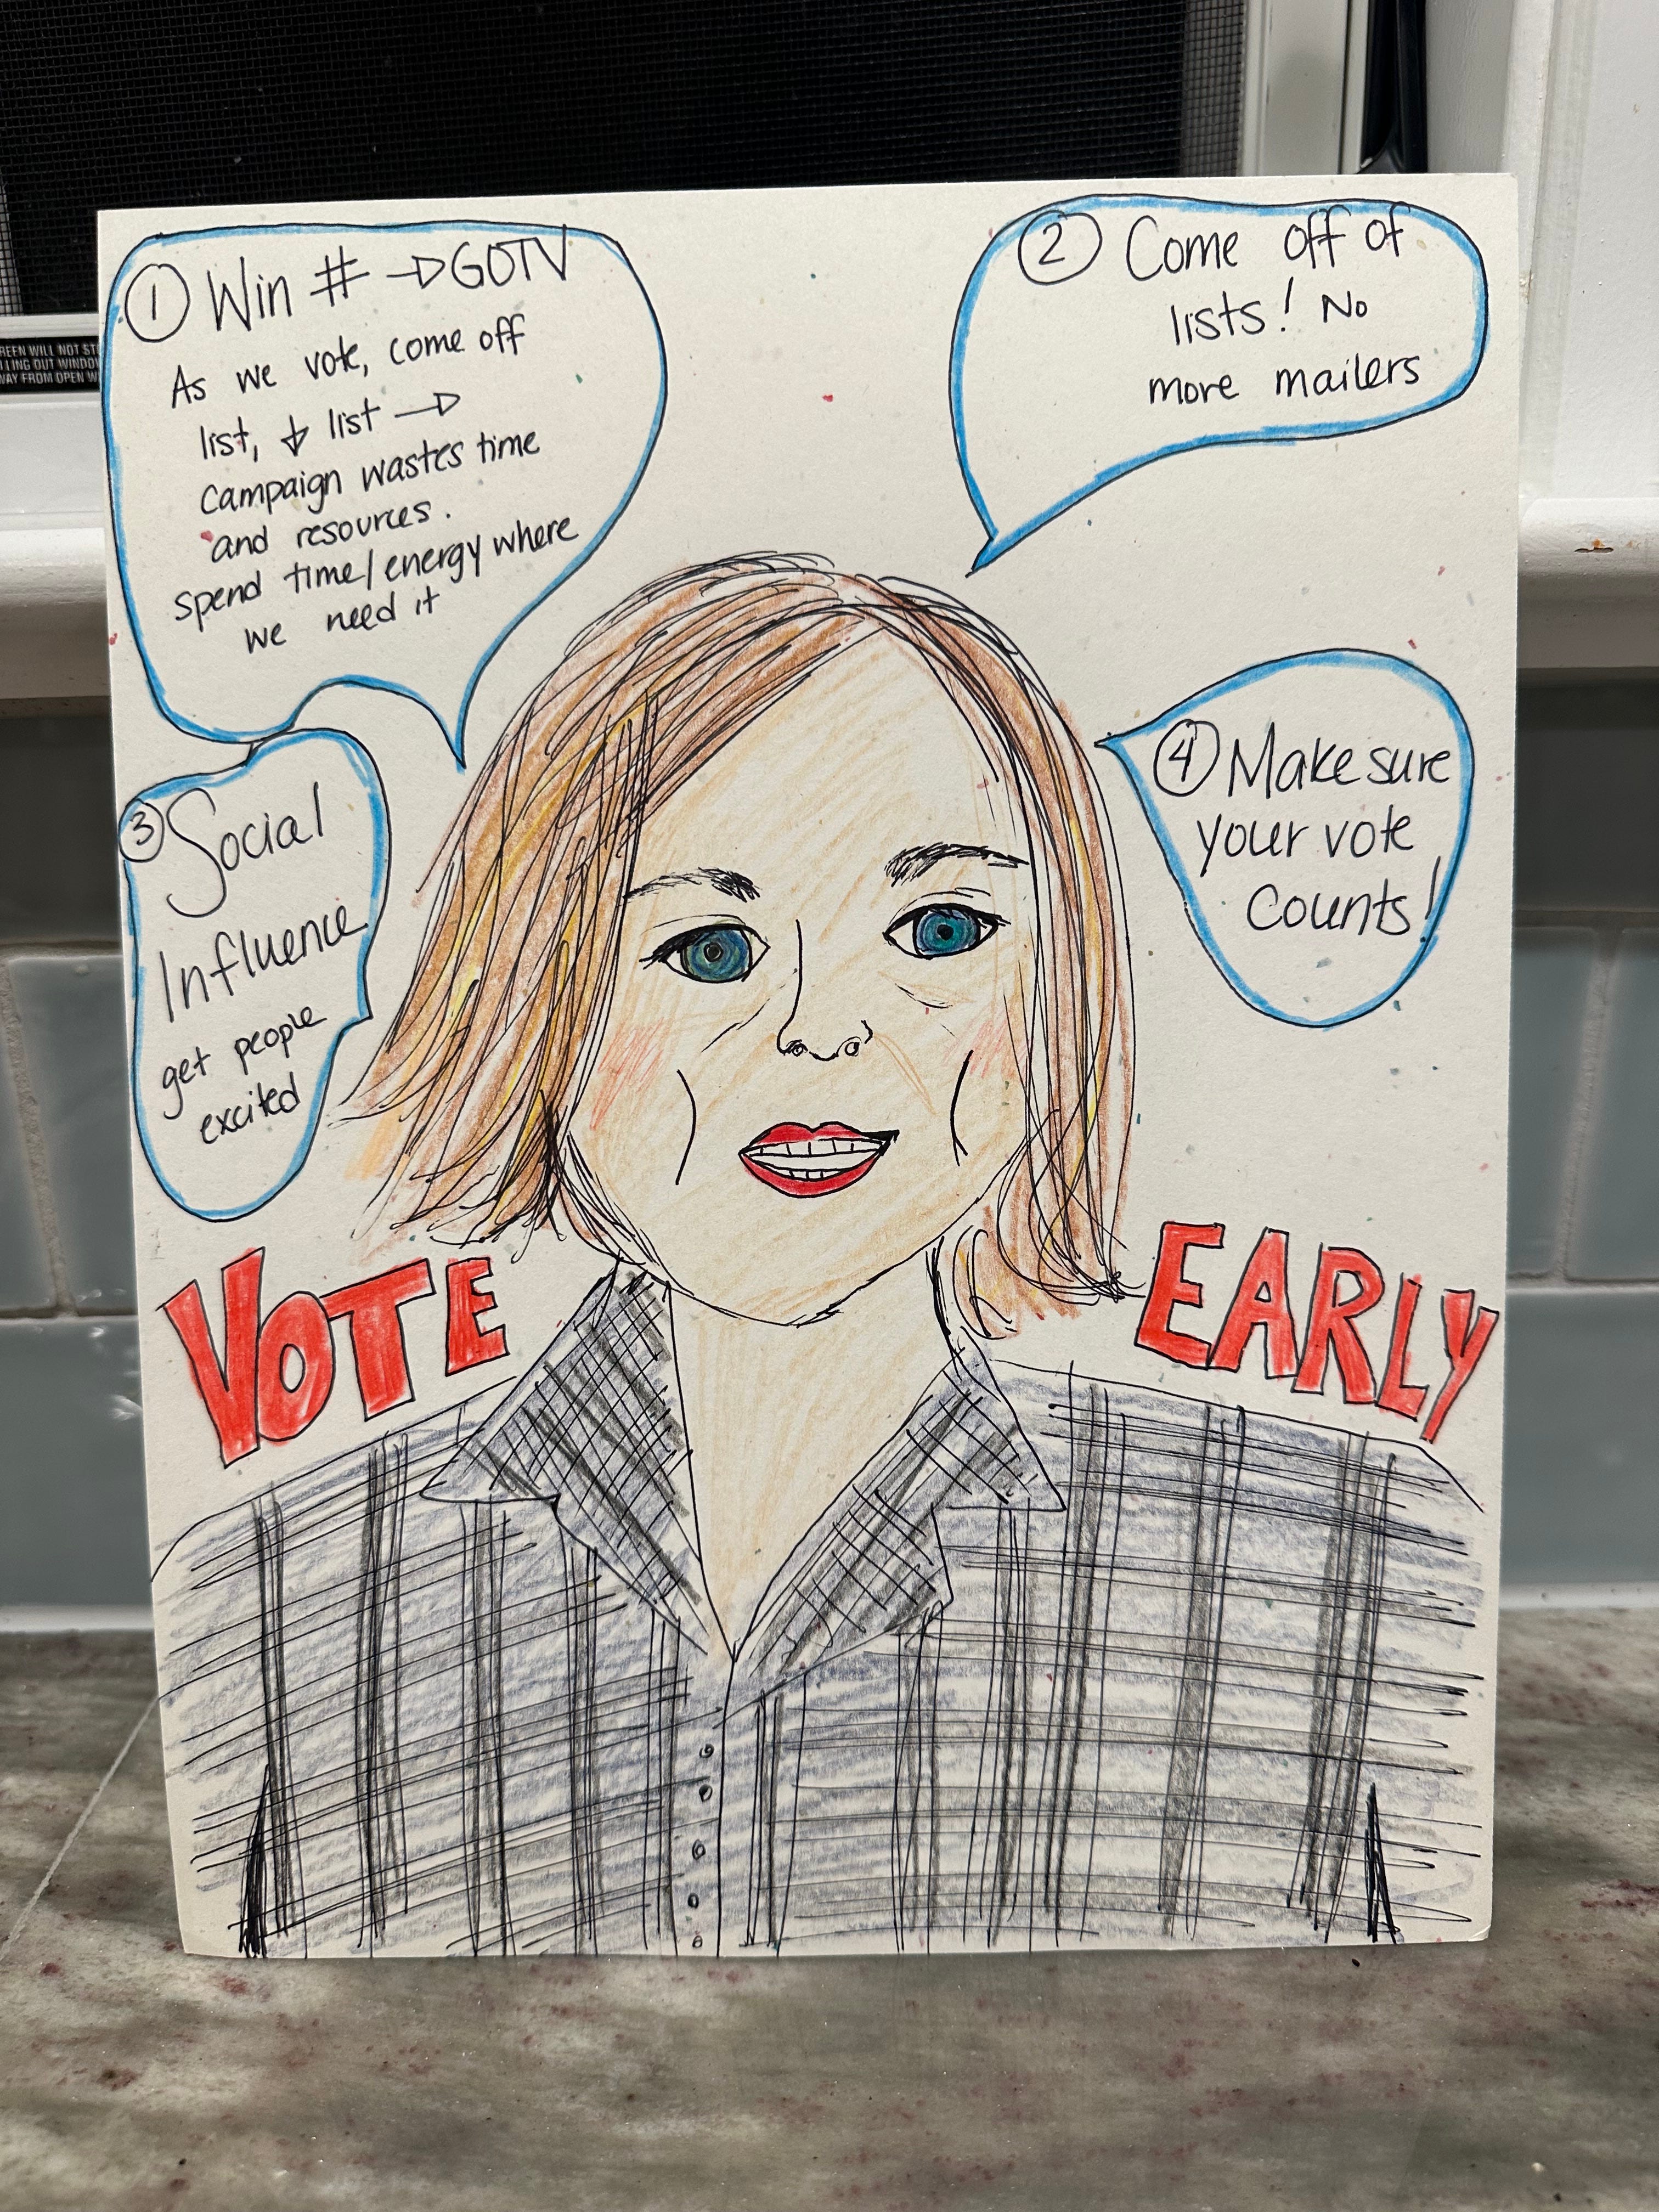 ① Win # → GOTV
As we vote, come off
list, ↓ list →
Campaign wastes time
and resources.
spend time/energy where
we need it
② Come off of
lists! No
more mailers
③ Social
Influence
get people
excited
④ Make sure
your vote
Counts!
VOTE
EARLY
REEN WILL NOT ST
LLING OUT WINDO
WAY FROM OPEN W